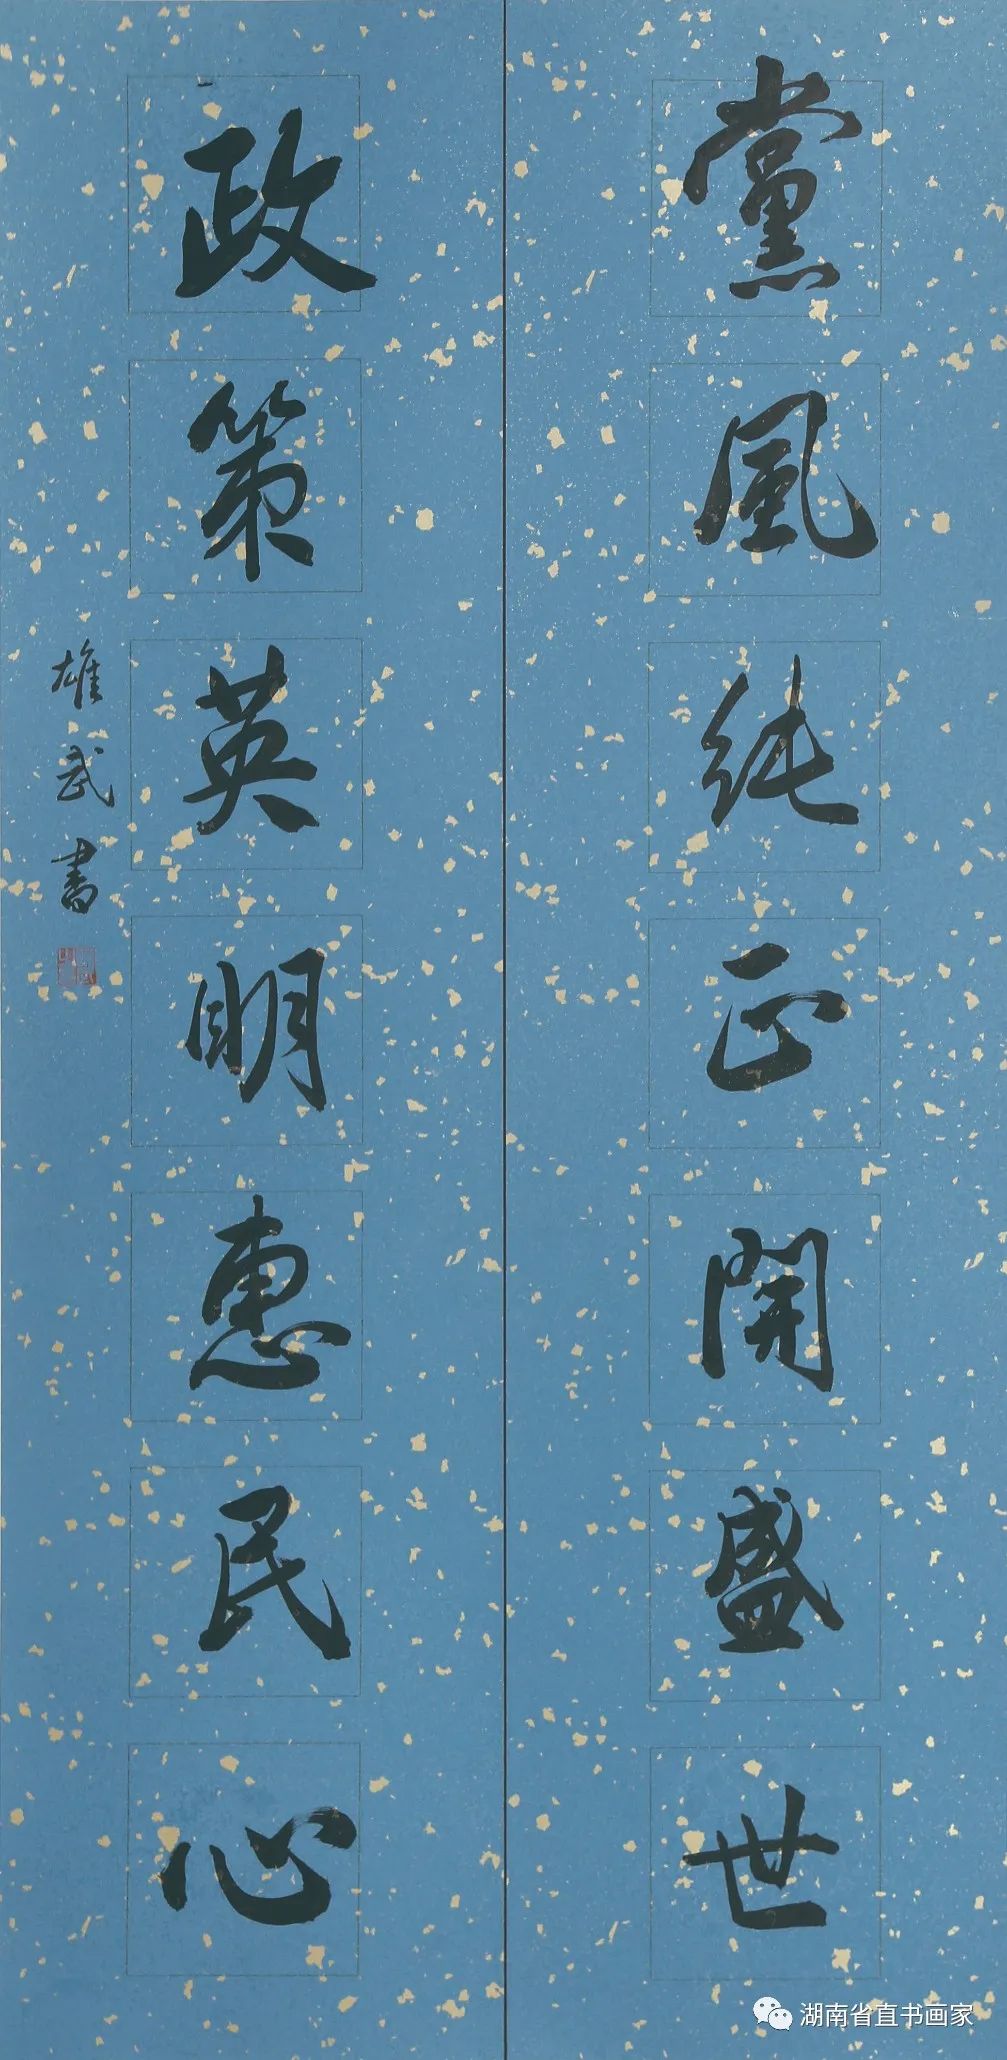 黨風純正開盛世
政策英明惠民心
雄武書
湖南省直书画家